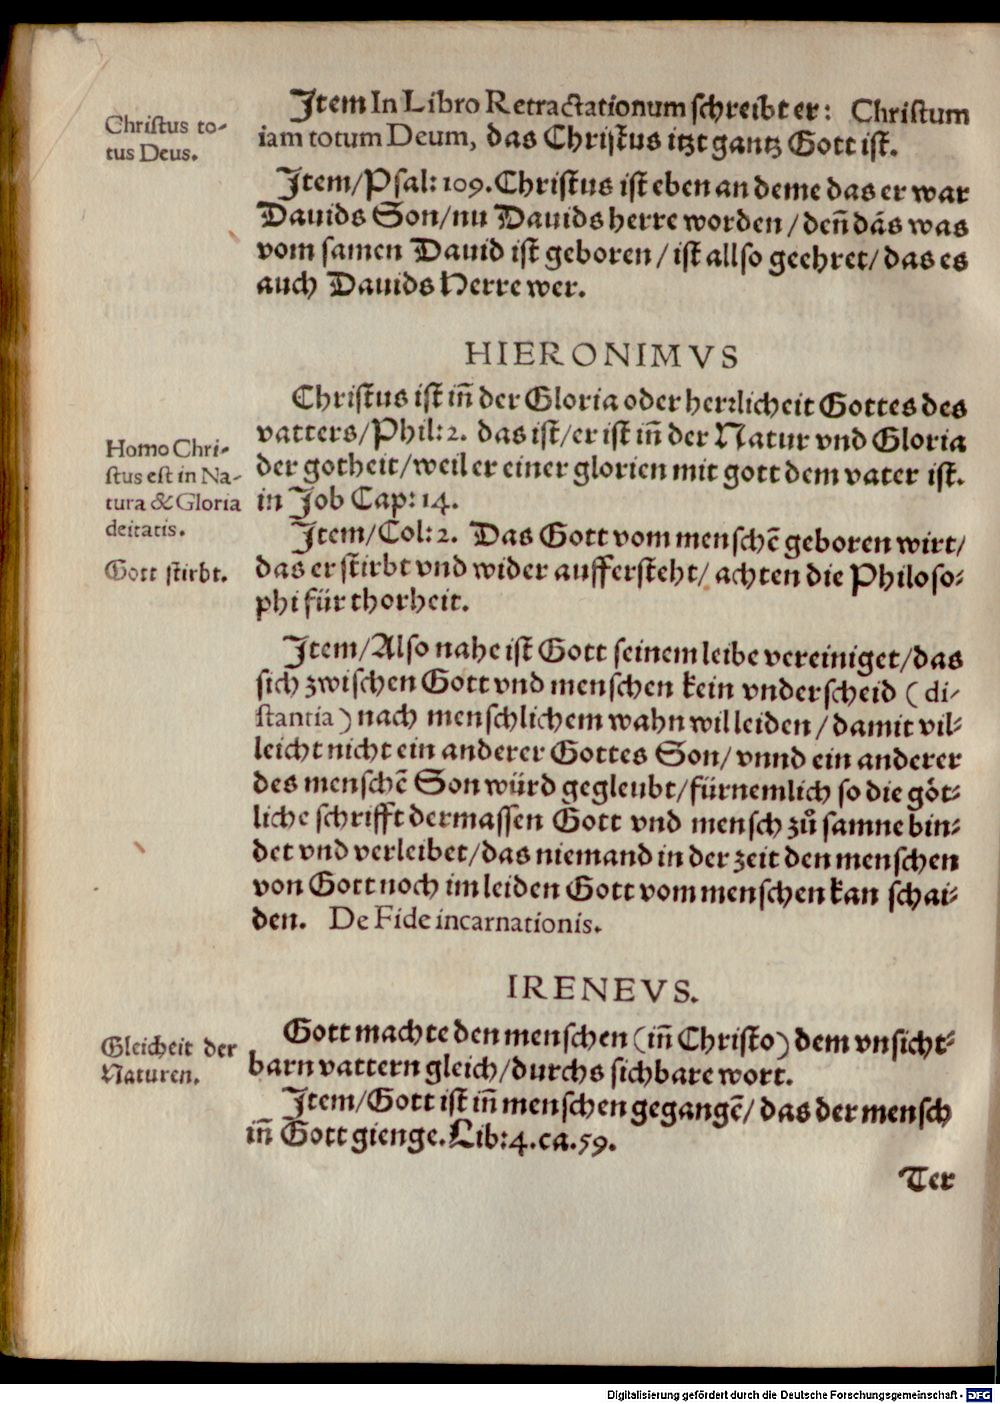 Item In Libro Retractationum schreibt er: Christum
iam totum Deum, das Christus itzt gantz Gott ist.
Christus to-
tus Deus.
Item/Psal: 109. Christus ist eben an deme das er war
Dauids Son/nu Dauids herre worden/deñ dās was
vom samen Dauid ist geboren/ist allso geehret/das es
auch Dauids Herre wer.
HIERONIMVS
Christus ist iñ der Gloria oder herꝛlicheit Gottes des
vatters/Phil: 2. das ist/er ist iñ der Natur vnd Gloria
der gotheit/weil er einer glorien mit gott dem vater ist.
in Job Cap: 14.
Homo Chri-
stus est in Na-
tura & Gloria
deitatis.
Item/Col: 2. Das Gott vom menschē geboren wirt/
das er stirbt vnd wider auffersteht/ achten die Philoso-
phi für thorheit.
Gott stirbt.
Item/Also nahe ist Gott seinem leibe vereiniget/das
sich zwischen Gott vnd menschen kein vnderscheid (di-
stantia) nach menschlichem wahn wil leiden/damit vil-
leicht nicht ein anderer Gottes Son/vnnd ein anderer
des menschē Son würd gegleubt/fürnemlich so die göt-
liche schrifft dermassen Gott vnd mensch zů samne bin-
det vnd verleibet/das niemand in der zeit den menschen
von Gott noch im leiden Gott vom menschen kan schai-
den. De Fide incarnationis.
IRENEVS.
Gott machte den menschen (iñ Christo) dem vnsicht-
barn vattern gleich/durchs sichbare wort.
Gleicheit der
Naturen.
Item/Gott ist iñ menschen gegangē/das der mensch
iñ Gott gienge. Lib: 4. ca. 59.
Ter
Digitalisierung gefördert durch die Deutsche Forschungsgemeinschaft - DFG